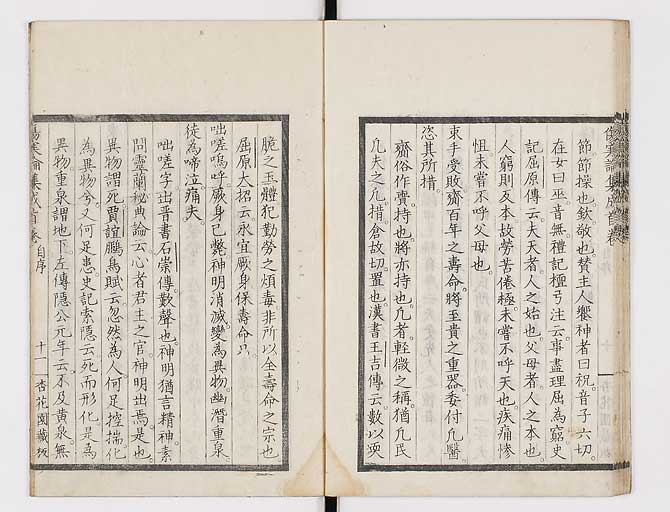 節節操也欽敬也賛主人饗神者曰祝音子六切
在女曰巫音無禮記檀弓注云事盡理屈為窮史
記屈原傳云夫天者人之始也父母者人之本也
人窮則反本故勞苦倦極未嘗不呼天也疾痛慘
怛未嘗不呼父母也
束手受敗齎百年之壽命將至貴之重器委付凡醫
恣其所措
齎俗作賷持也將亦持也凡者輕微之稱猶凡民
凡夫之凡措倉故切置也漢書王吉傳云數以耎
脆之玉體犯勤勞之煩毒非所以全壽命之宗也
屈原大招云永宜厥身保壽命只
咄嗟嗚呼厥身已斃神明消滅變為異物幽潛重泉
徒為啼泣痛夫
咄嗟字出晋書石崇傳歎聲也神明猶言精神素
問靈蘭秘典論云心者君主之官神明出焉是也
異物謂死賈誼鵬鳥賦云忽然為人何足控揣化
為異物兮又何足患史記索隱云死而形化是為
異物重泉謂地下左傳隱公元年云不及黄泉無
傷寒論集成首卷 自序 十一 杏花園藏板